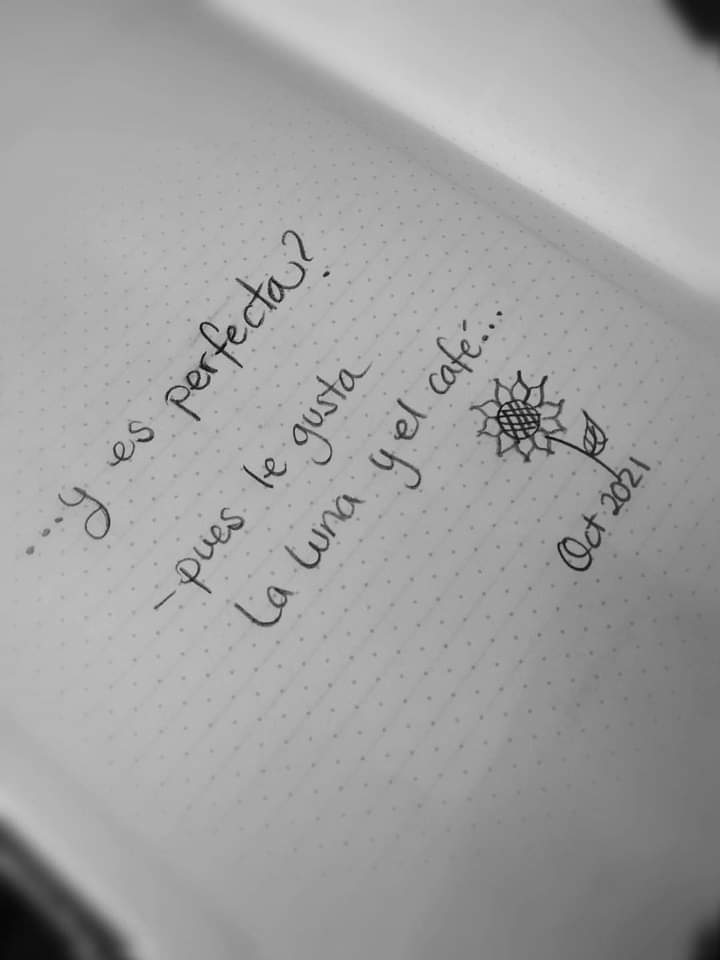 ...y es perfecta?
-pues le gusta
La luna y el café...
Oct 2021